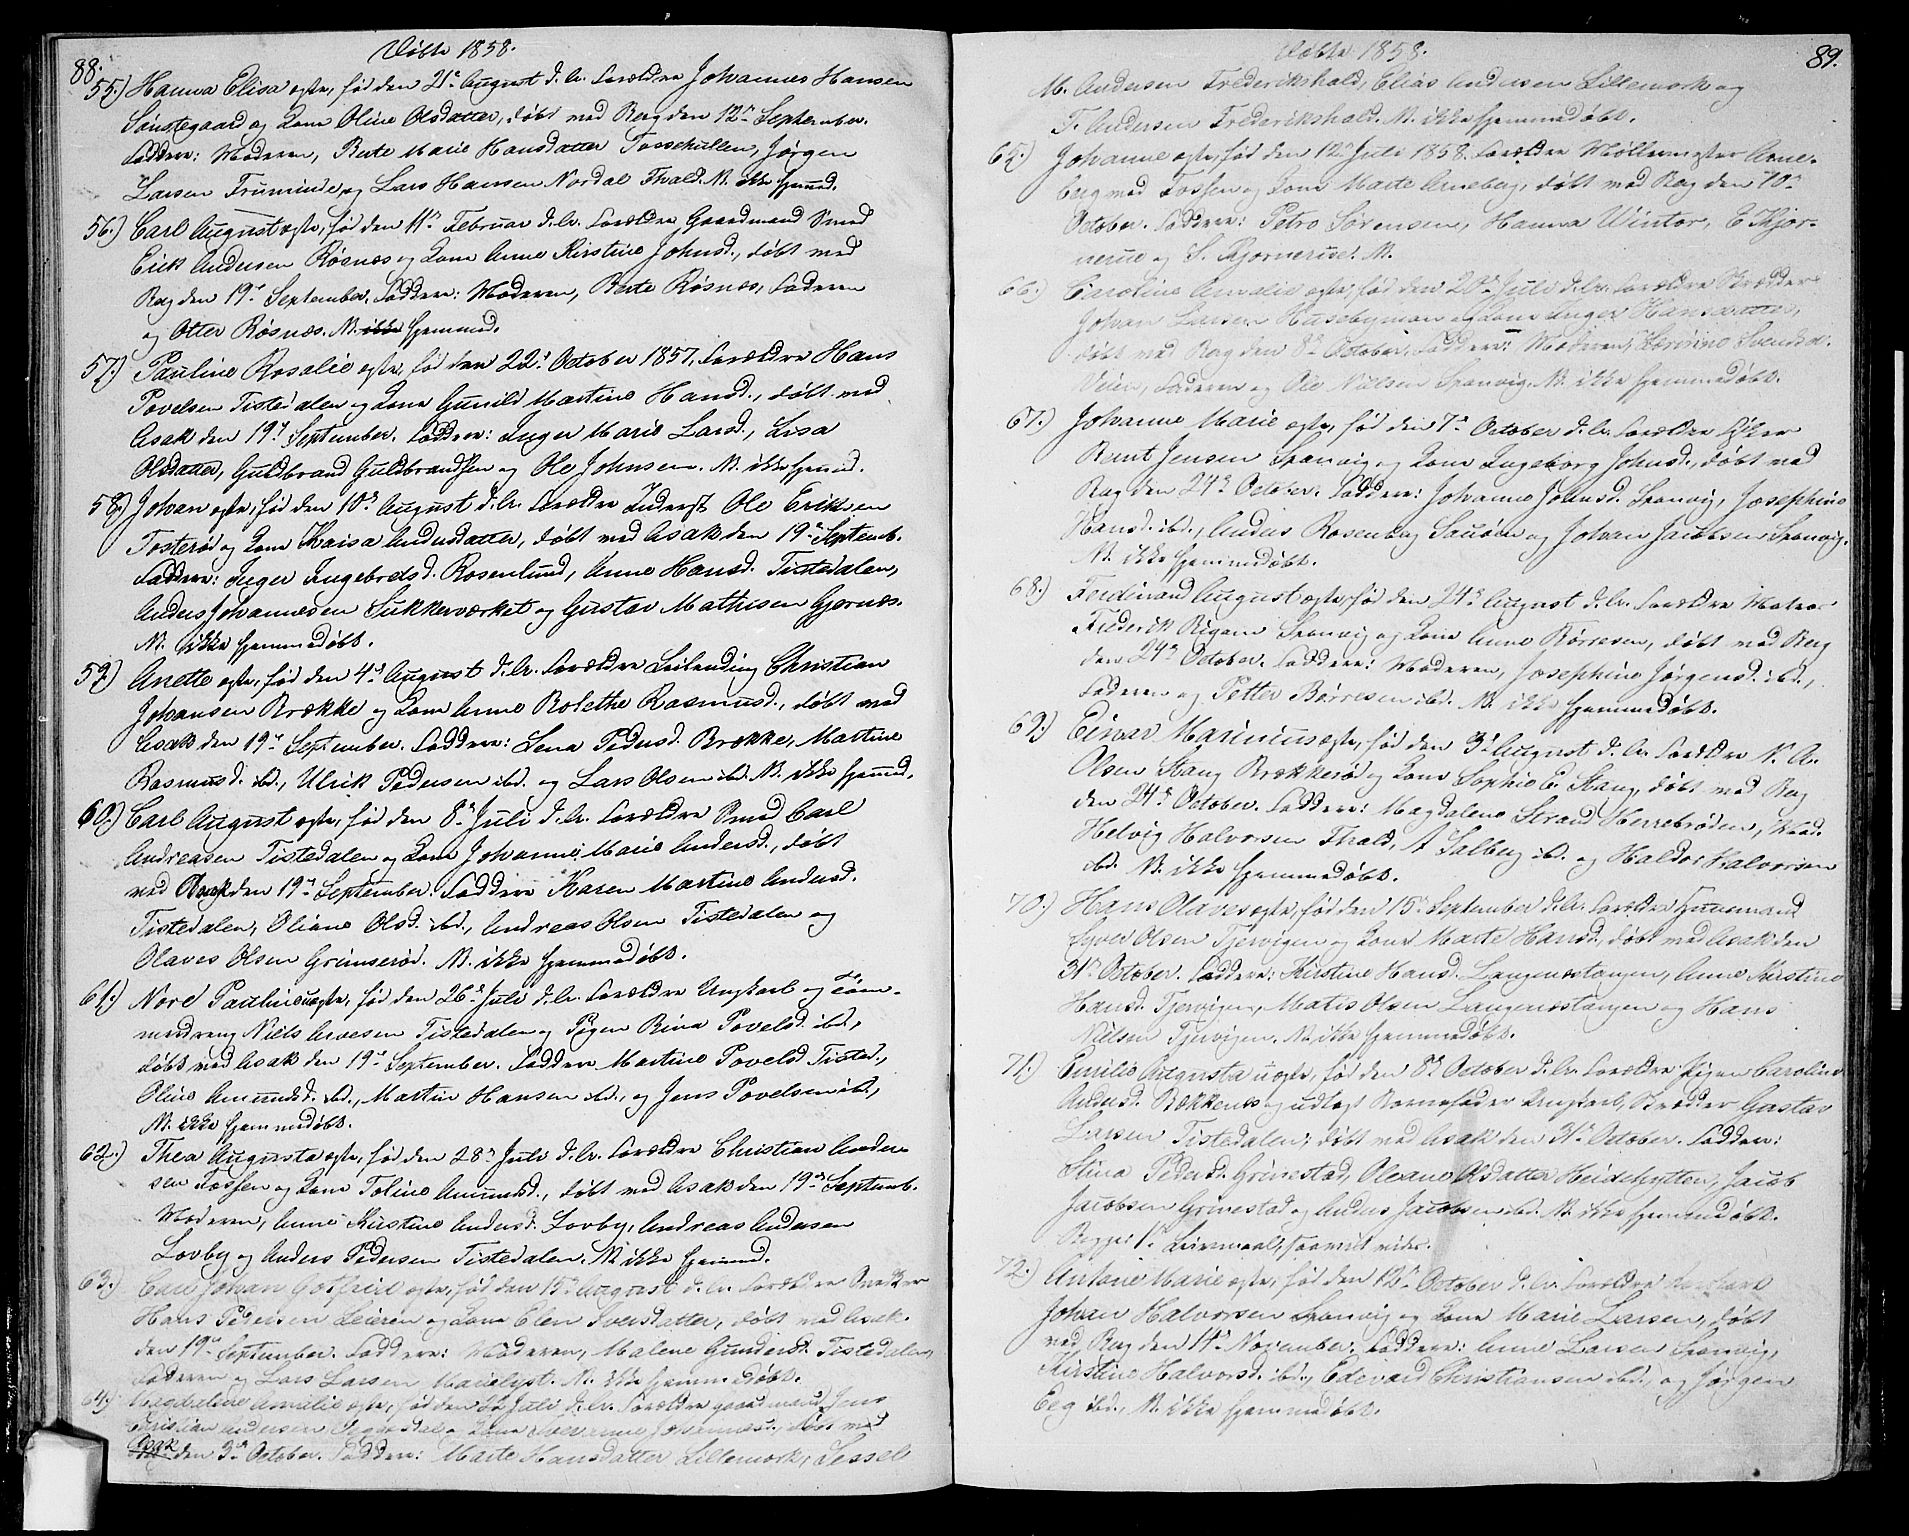 88.
Døbte 1858.
55.) Hanna Elisa ægte, fød den 21de August d. A. Forældre Johannes Hansen
Sønstegaard og Kone Oline Olsdatter, døbt ved Berg den 12te September.
Faddere: Moderen, Berte Marie Hansdatter Fossehullen, Jørgen
Larsen Truminde og Lars Hansen Nordal Fhald. N. ikke hjemmed.
56.) Carl August ægte, fød den 11te Februar d. A. Forældre Gaardmand Smed
Erick Andersen Røsnæs og Kone Anne Kirstine Johnsd., døbt ved
Berg den 19de September. Faddere: Moderen, Berte Røsnæs, Faderen
og Otter Røsnæs. N. ikke hjemmed.
57.) Pauline Rosalie ægte, fød den 22de October 1857. Forældre Hans
Povelsen Tistedalen og Kone Gunild Martine Hansd., døbt ved
Asak den 19de September. Faddere: Inger Marie Larsd., Lisa
Olsdatter, Guldbrand Guldbrandsen og Ole Johnsen. N. ikke hjemmed.
58.) Johan ægte, fød den 10de August d. A. Forældre Inderst Ole Eriksen
Tosterød og Kone Kaisa Andersdatter, døbt ved Asak den 19de Septemb.
Faddere: Inger Ingebretsd. Rosenlund, Anne Hansd. Tistedalen,
Anders Johannesen Sukkerværket og Gustav Mathisen Gjernæs.
N. ikke hjemmedøbt.
59.) Anette ægte, fød den 4de August d. A. Forældre Leilending Christian
Johansen Brække og Kone Anne Bolethe Rasmusd., døbt ved
Asak den 19de September. Faddere: Lena Pedersd. Brække, Martine
Rasmusd. ibd., Ulrik Pedersen ibd. og Lars Olsen ibd. N. ikke hjemmed.
60.) Carl August ægte, fød den 8de Juli d. A. Forældre Smed Carl
Andreasen Tistedalen og Kone Johanne Marie Andersd., døbt
ved Asak den 19de September. Faddere Karen Martine Andersd.
Tistedalen, Oliane Olsd. ibd., Andreas Olsen Tistedalen og
Olaves Olsen Grimserød. N. ikke hjemmedøbt.
61.) Nord Paulines uægte, fød den 26de Juli d. A. Forældre Ungkarl og Tøm-
merdreng Niels Arvesen Tistedalen og Pigen Rina Povelsd. ibd.,
døbt ved Asak den 19de September. Faddere Martine Povelsd. Tisted.,
Oline Amundsd. ibd., Martin Hansen ibd., og Jens Povelsen ibd.,
N. ikke hjemmedøbt.
62.) Thea Augusta ægte, fød den 28de Juli d. A. Forældre Christian Ander-
sen Fossen og Kone Toline Amundsd., døbt ved Asak den 19de Septemb.
Moderen, Anne Kirstine Andersd. Lovby, Andreas Andersen
Lovby og Anders Pedersen Tistedalen. N. ikke hjemmed.
63.) Carl Johan Gotfried ægte, fød den 15de August d. A. Forældre Snedker
Hans Pedersen Leieren og Kone Elen Iversdatter, døbt ved Asak
den 19de September. Faddere: Moderen, Malene Gundersd. Tistedalen,
Faderen og Lars Larsen Marielyst. N. ikke hjemmedøbt.
64.) Magdaline Amalie ægte, fød den Juli d. A. Forældre Gaardmand Jens
Christian Andersen og Kone Johannesd., døbt ved
Asak den 3de October. Faddere: Marte Hansdatter Lillemork, Sessel
89.
Døbte 1858.
M. Andersen Frederikshald, Elias Andersen Lillemork og
T. Andersen Frederikshald. N. ikke hjemmedøbt.
65.) Johanne ægte, fød den 12te Juli 1858. Forældre Møllermester Arne-
berg ved Fossen og Kone Marte Arneberg, døbt ved Berg den 10de
October. Faddere: Petro Sørensen, Hanna Winter, E. Kjør-
nerue og S. Kjørnerise. N.
66.) Caroline Amalie ægte, fød den 20de Juli d. A. Forældre Skrædder
Johan Larsen Husebymoen og Kone Inger Hansdatter,
døbt ved Berg den 8de October. Faddere: Moderen, Severine Svendsd.
Veien, Faderen og Ole Nielsen Sponvig. N. ikke hjemmedøbt.
67.) Johanne Marie ægte, fød den 7de October d. A. Forældre Fisker
Bernt Jensen Sponvig og Kone Ingeborg Johnsd., døbt ved
Berg den 24de October. Faddere: Johanne Johnsd. Sponvig, Josephine
Hansd. ibd., Anders Rosenberg Sauøen og Johan Jacobsen Sponvig.
N. ikke hjemmedøbt.
68.) Ferdinand August ægte, fød den 24de August d. A. Forældre Matros
Frederik Bigum Sponvig og Kone Anne Børresen, døbt ved Berg
den 24de October. Faddere: Moderen, Josephine Jørgensd. ibd.,
Faderen og Petter Børresen ibd. N. ikke hjemmedøbt.
69.) Einar Marinius ægte, fød den 3de August d. A. Forældre N. A.
Olsen Stang Brækkerød og Kone Sophie E. Stang, døbt ved Berg
den 24de October. Faddere: Magdalene Strand Herrebrøden, Mad.
Helvig Halvorsen Fhald, A Salberg ibd. og Haldor Halvorsen
ibd. N. ikke hjemmedøbt.
70.) Hans Olaves ægte, fød den 15de September d. A. Forældre Huusmand
Syver Olsen Tjervigen og Kone Marte Hansd., døbt ved Asak den
31te October. Faddere: Kirstine Hansd. Langenstangen, Anne Kirstine
Hansd. Tjervigen, Matis Olsen Langensstangen og Hans
Nielsen Tjervigen. N. ikke hjemmedøbt.
71.) Emilie Augusta uægte, fød den 8de October d. A. Forældre Pigen Caroline
Andersd. Bækkenes og udlagt Barnefader Ungkarl, Skrædder Gustav
Larsen Tistedalen, døbt ved Asak den 31te October. Faddere:
Stina Pedersd. Grinestad, Oleane Olsdatter Heidehytten, Jacob
Jacobsen Grinestad og Anders Jacobsen ibd. N. ikke hjemmedøbt.
Begges 1ste Leiermaal, saavidt vides.
72.) Antonie Marie ægte, fød den 12te October d. A. Forældre
Johan Halvorsen Sponvig og Kone Marie Larsen, døbt
ved Berg den 14de November. Faddere: Anne Larsen Sponvig,
Kirstine Halvorsd. ibd., Edevard Christiansen ibd., og Jørgen
Eeg ibd., N. ikke hjemmedøbt.